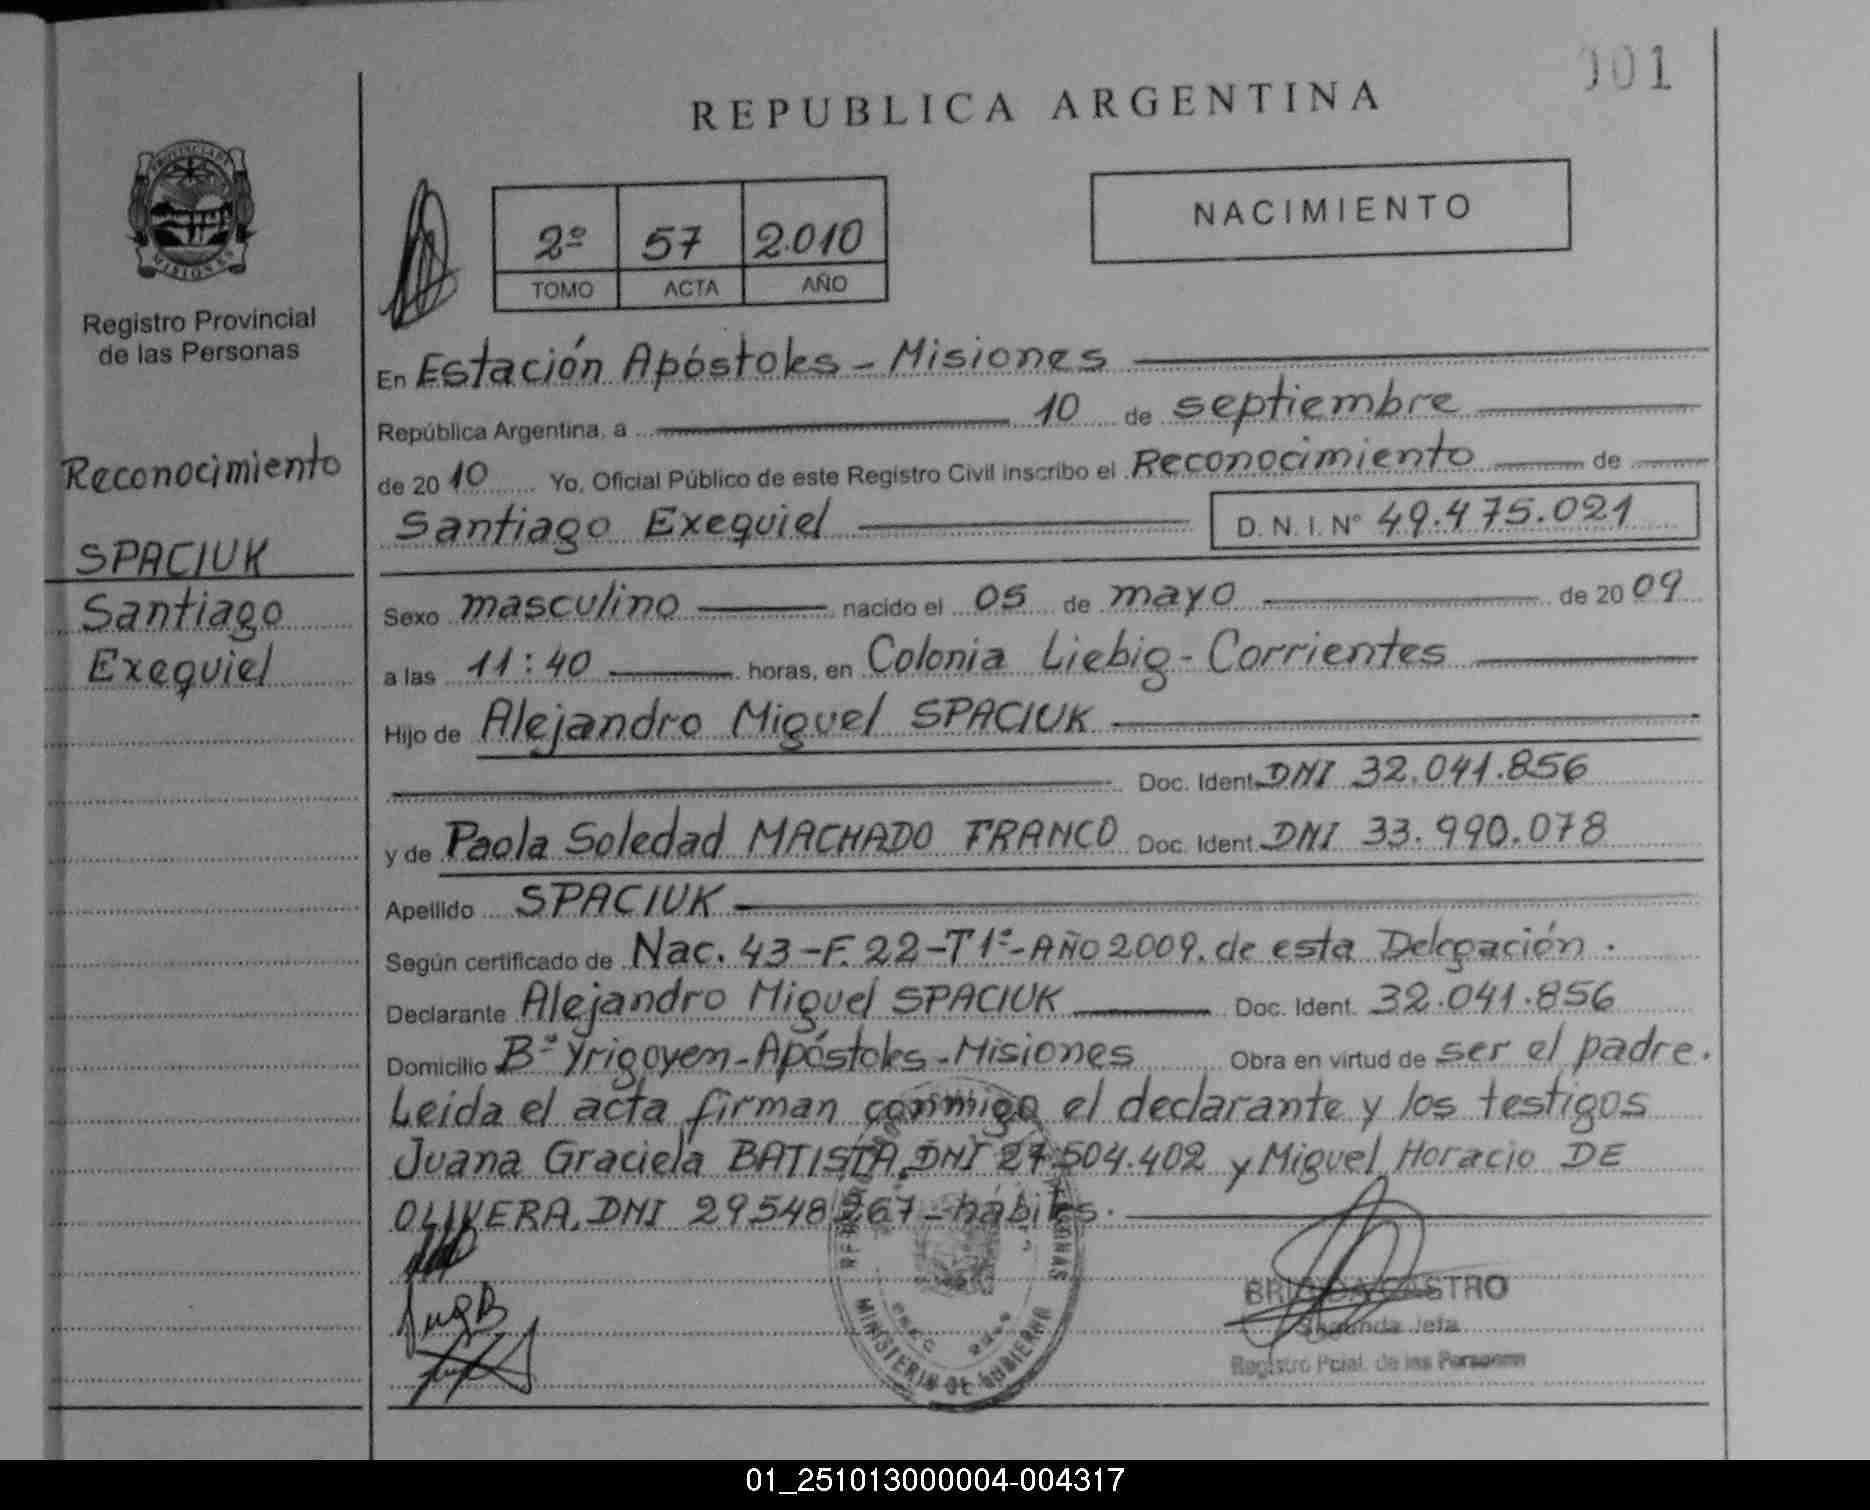 001
REPUBLICA ARGENTINA
PROVINCIA DE
MISIONES
Registro Provincial
de las Personas
2º 57 2.010
TOMO ACTA AÑO
NACIMIENTO
Reconocimiento
SPACIUK
Santiago
Exequiel
En Estación Apóstoles - Misiones
República Argentina, a 10 de septiembre
de 2010 Yo, Oficial Público de este Registro Civil inscribo el Reconocimiento de
Santiago Exequiel D. N. I. Nº 49.475.021
Sexo masculino nacido el 05 de mayo de 2009
a las 11:40 horas, en Colonia Liebig - Corrientes
Hijo de Alejandro Miguel SPACIUK
Doc. Ident. DNI 32.041.856
y de Paola Soledad MACHADO FRANCO Doc. Ident. DNI 33.990.078
Apellido SPACIUK
Según certificado de Nac. 43-F. 22-T1º-AÑO 2009. de esta Delegación.
Declarante Alejandro Miguel SPACIUK Doc. Ident. 32.041.856
Domicilio Bº Yrigoyen-Apóstoles-Misiones Obra en virtud de ser el padre.
Leida el acta firman conmigo el declarante y los testigos
Juana Graciela BATISTA, DNI 27504.402 y Miguel Horacio DE
OLIVERA, DNI 29548267 - hábiles.
MINISTERIO DE GOBIERNO
BRIGIDA CASTRO
Segunda Jefa
Registro Pcial. de las Personas
01_251013000004-004317